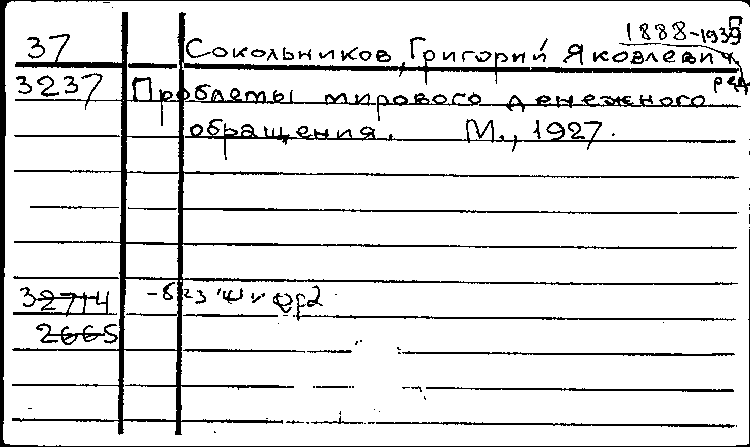 1888-1939
37 Сокольников, Григорий Яковлевич,
ред.
3237 Проблемы мирового денежного
обращения. М., 1927.
32714 -без шифра
2665